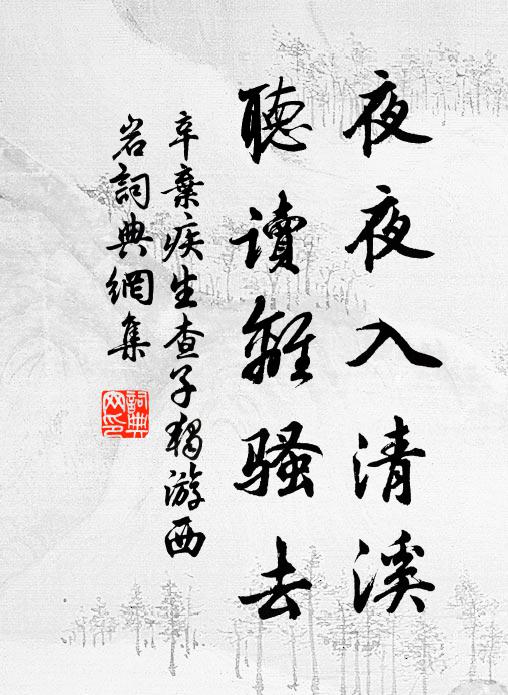 夜夜入清溪
聽讀離騷去
辛棄疾生查子獨游西
岩詞典網集
詞典
网印